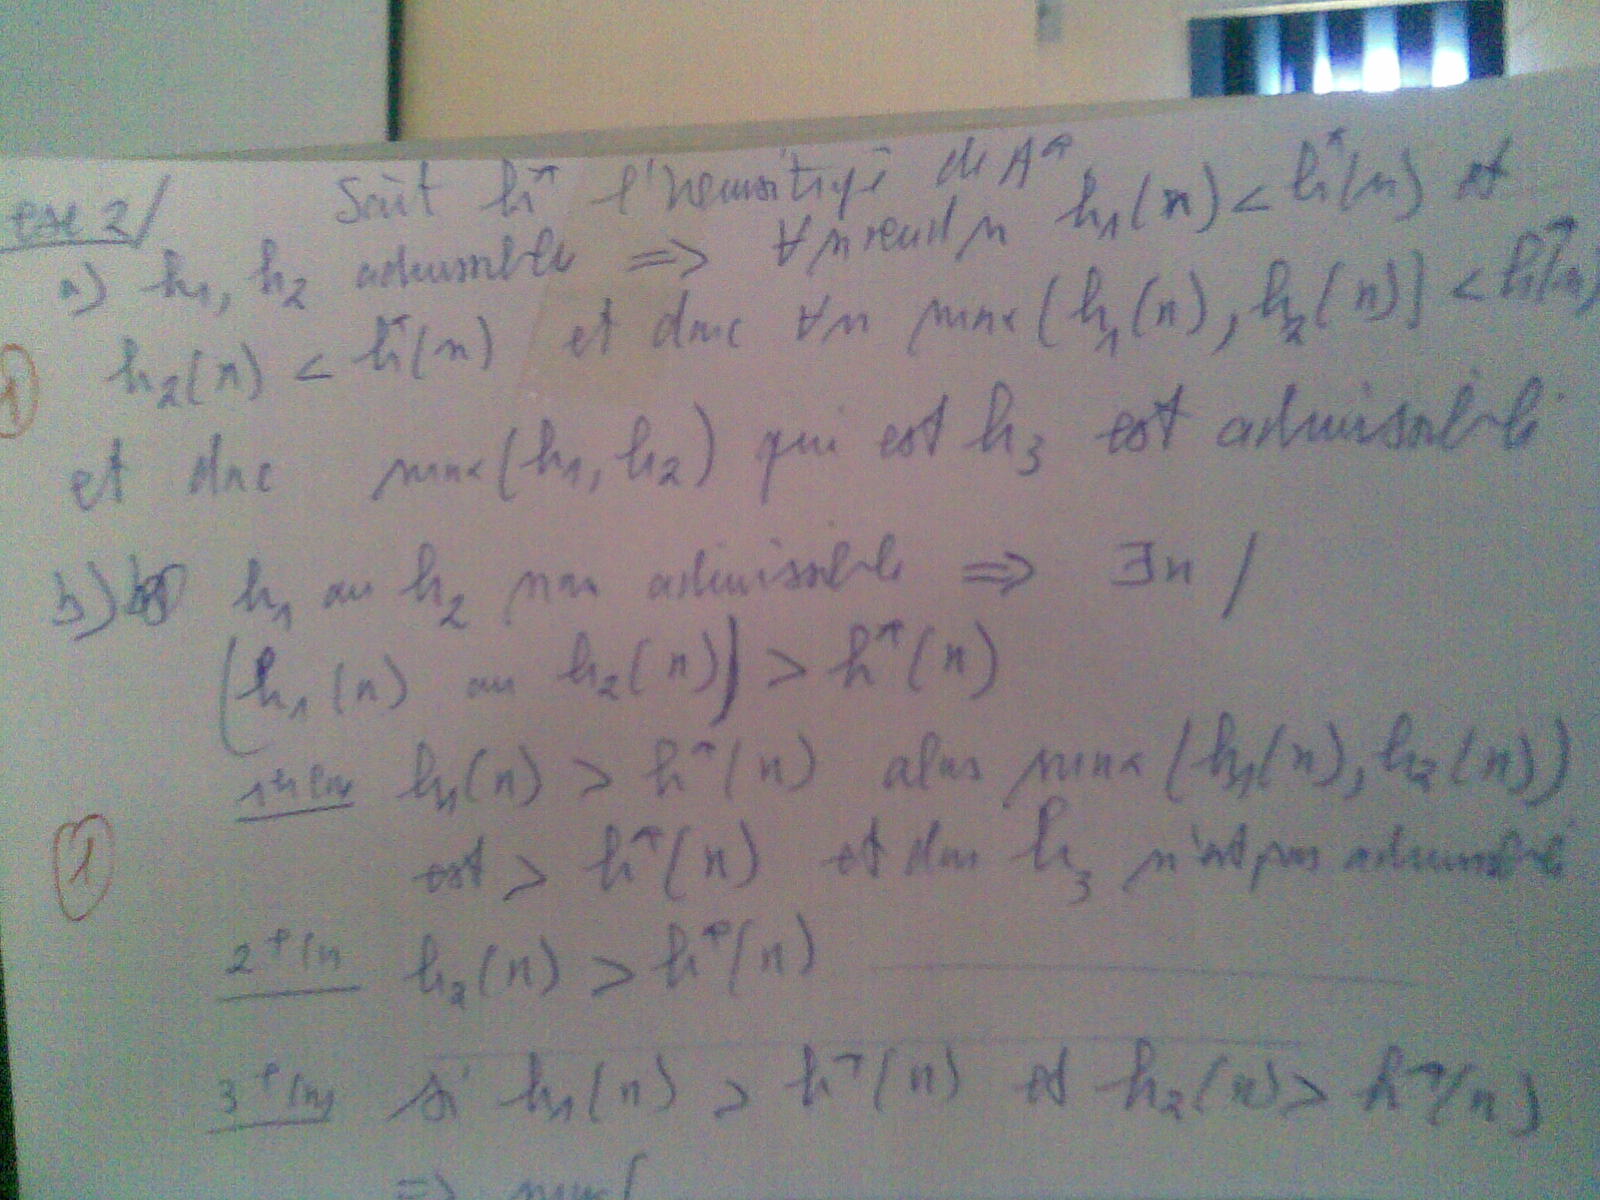 exe 2/ Soit h* l'heuristique de A*
a) h₁, h₂ admissible ⇒ ∀ nœud n h₁(n) < h*(n) et
h₂(n) < h*(n) et donc ∀n max(h₁(n), h₂(n)) < h*(n)
1
et donc max(h₁, h₂) qui est h₃ est admissible
b) h₁ ou h₂ non admissible ⇒ ∃n /
(h₁(n) ou h₂(n)) > h*(n)
1er cas h₁(n) > h*(n) alors max(h₁(n), h₂(n))
1
est > h*(n) et donc h₃ n'est pas admissible
2e cas h₂(n) > h*(n)
3e cas si h₁(n) > h*(n) et h₂(n) > h*(n)
⇒ max(